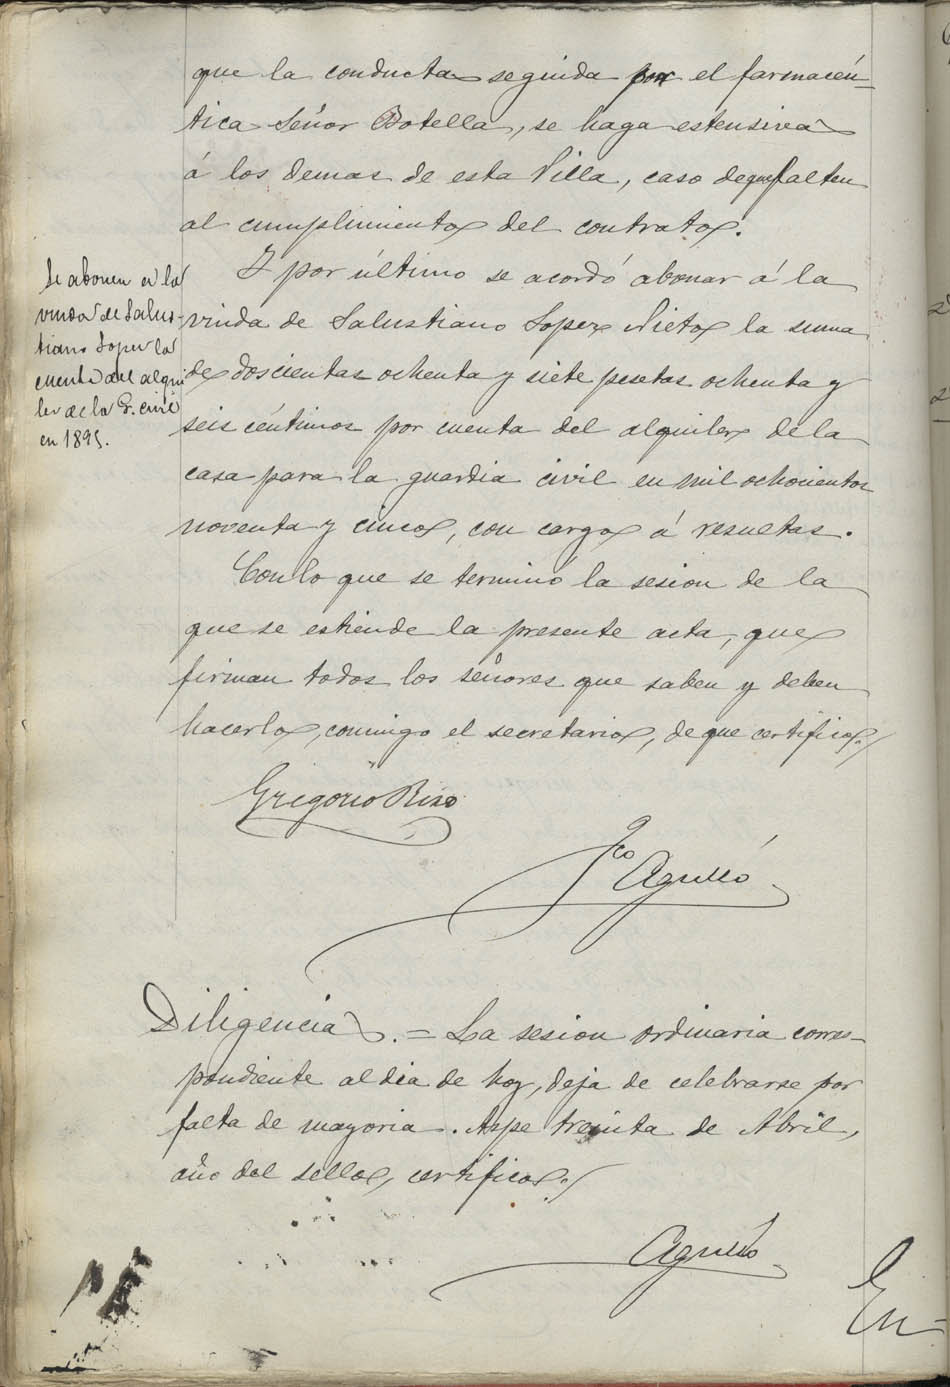 que la conducta seguida por el farmaceú-
tica Señor Botella, se haga estensiva
á los demas de esta Villa, caso de que falten
al cumplimiento del contrato.
Se abonen á la
viuda de Salus-
tiano Lopez la
cuenta del alqui
ler de la G. civil
en 1895.
Y por último se acordó abonar á la
viuda de Salustiano Lopez Nieto la suma
de doscientas ochenta y siete pesetas ochenta y
seis céntimos por cuenta del alquiler de la
casa para la guardia civil en mil ochocientos
noventa y cinco, con cargo á resultas.
Con lo que se terminó la sesion de la
que se estiende la presente acta, que
firman todos los señores que saben y deben
hacerlo, conmigo el secretario, de que certifico.
Gregorio Rizo
Fco Agulló
Diligencia. = La sesion ordinaria corres-
pondiente al dia de hoy, deja de celebrarse por
falta de mayoria. Aspe treinta de Abril,
año del sello, certifico.
Agulló
En